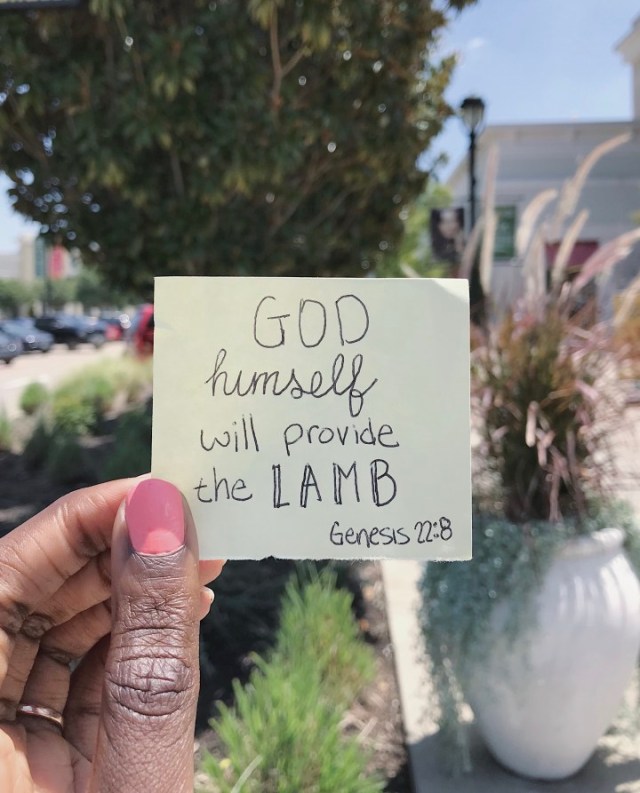 GOD
himself
will provide
the LAMB
Genesis 22:8